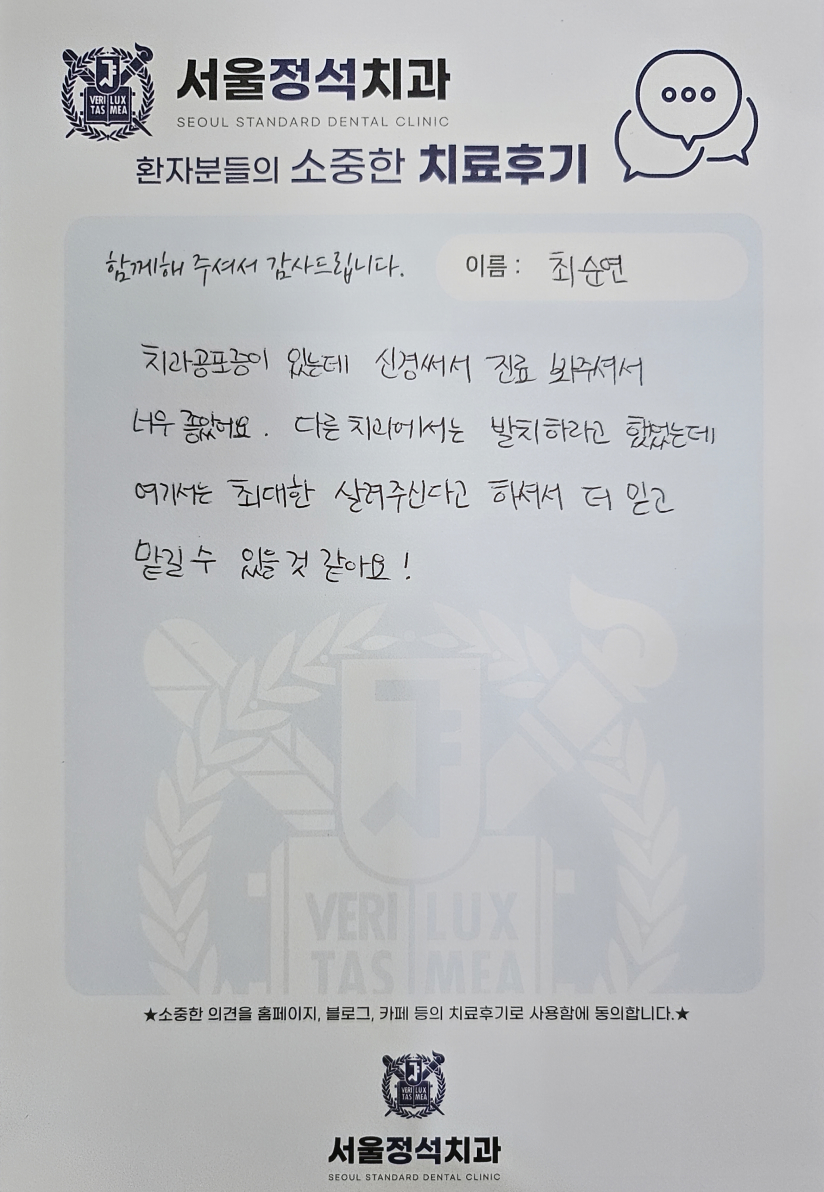 VERI LUX
TAS MEA
서울정석치과
SEOUL STANDARD DENTAL CLINIC
환자분들의 소중한 치료후기
함께해 주셔서 감사드립니다.
이름 : 최순연
치과공포증이 있는데 신경써서 진료 봐주셔서
너무 좋았어요. 다른 치과에서는 발치하라고 했었는데
여기서는 최대한 살려주신다고 하셔서 더 믿고
맡길 수 있을 것 같아요!
VERI LUX
TAS MEA
★소중한 의견을 홈페이지, 블로그, 카페 등의 치료후기로 사용함에 동의합니다.★
VERI LUX
TAS MEA
서울정석치과
SEOUL STANDARD DENTAL CLINIC